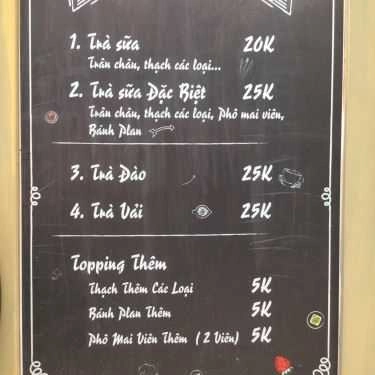 1. Trà sữa 20K
Trân châu, thạch các loại...
2. Trà sữa Đặc Biệt 25K
Trân châu, thạch các loại, Phô mai viên,
Bánh Plan
3. Trà Đào 25K
4. Trà Vải 25K
Topping Thêm
Thạch Thêm Các Loại 5K
Bánh Plan Thêm 5K
Phô Mai Viên Thêm ( 2 Viên) 5K